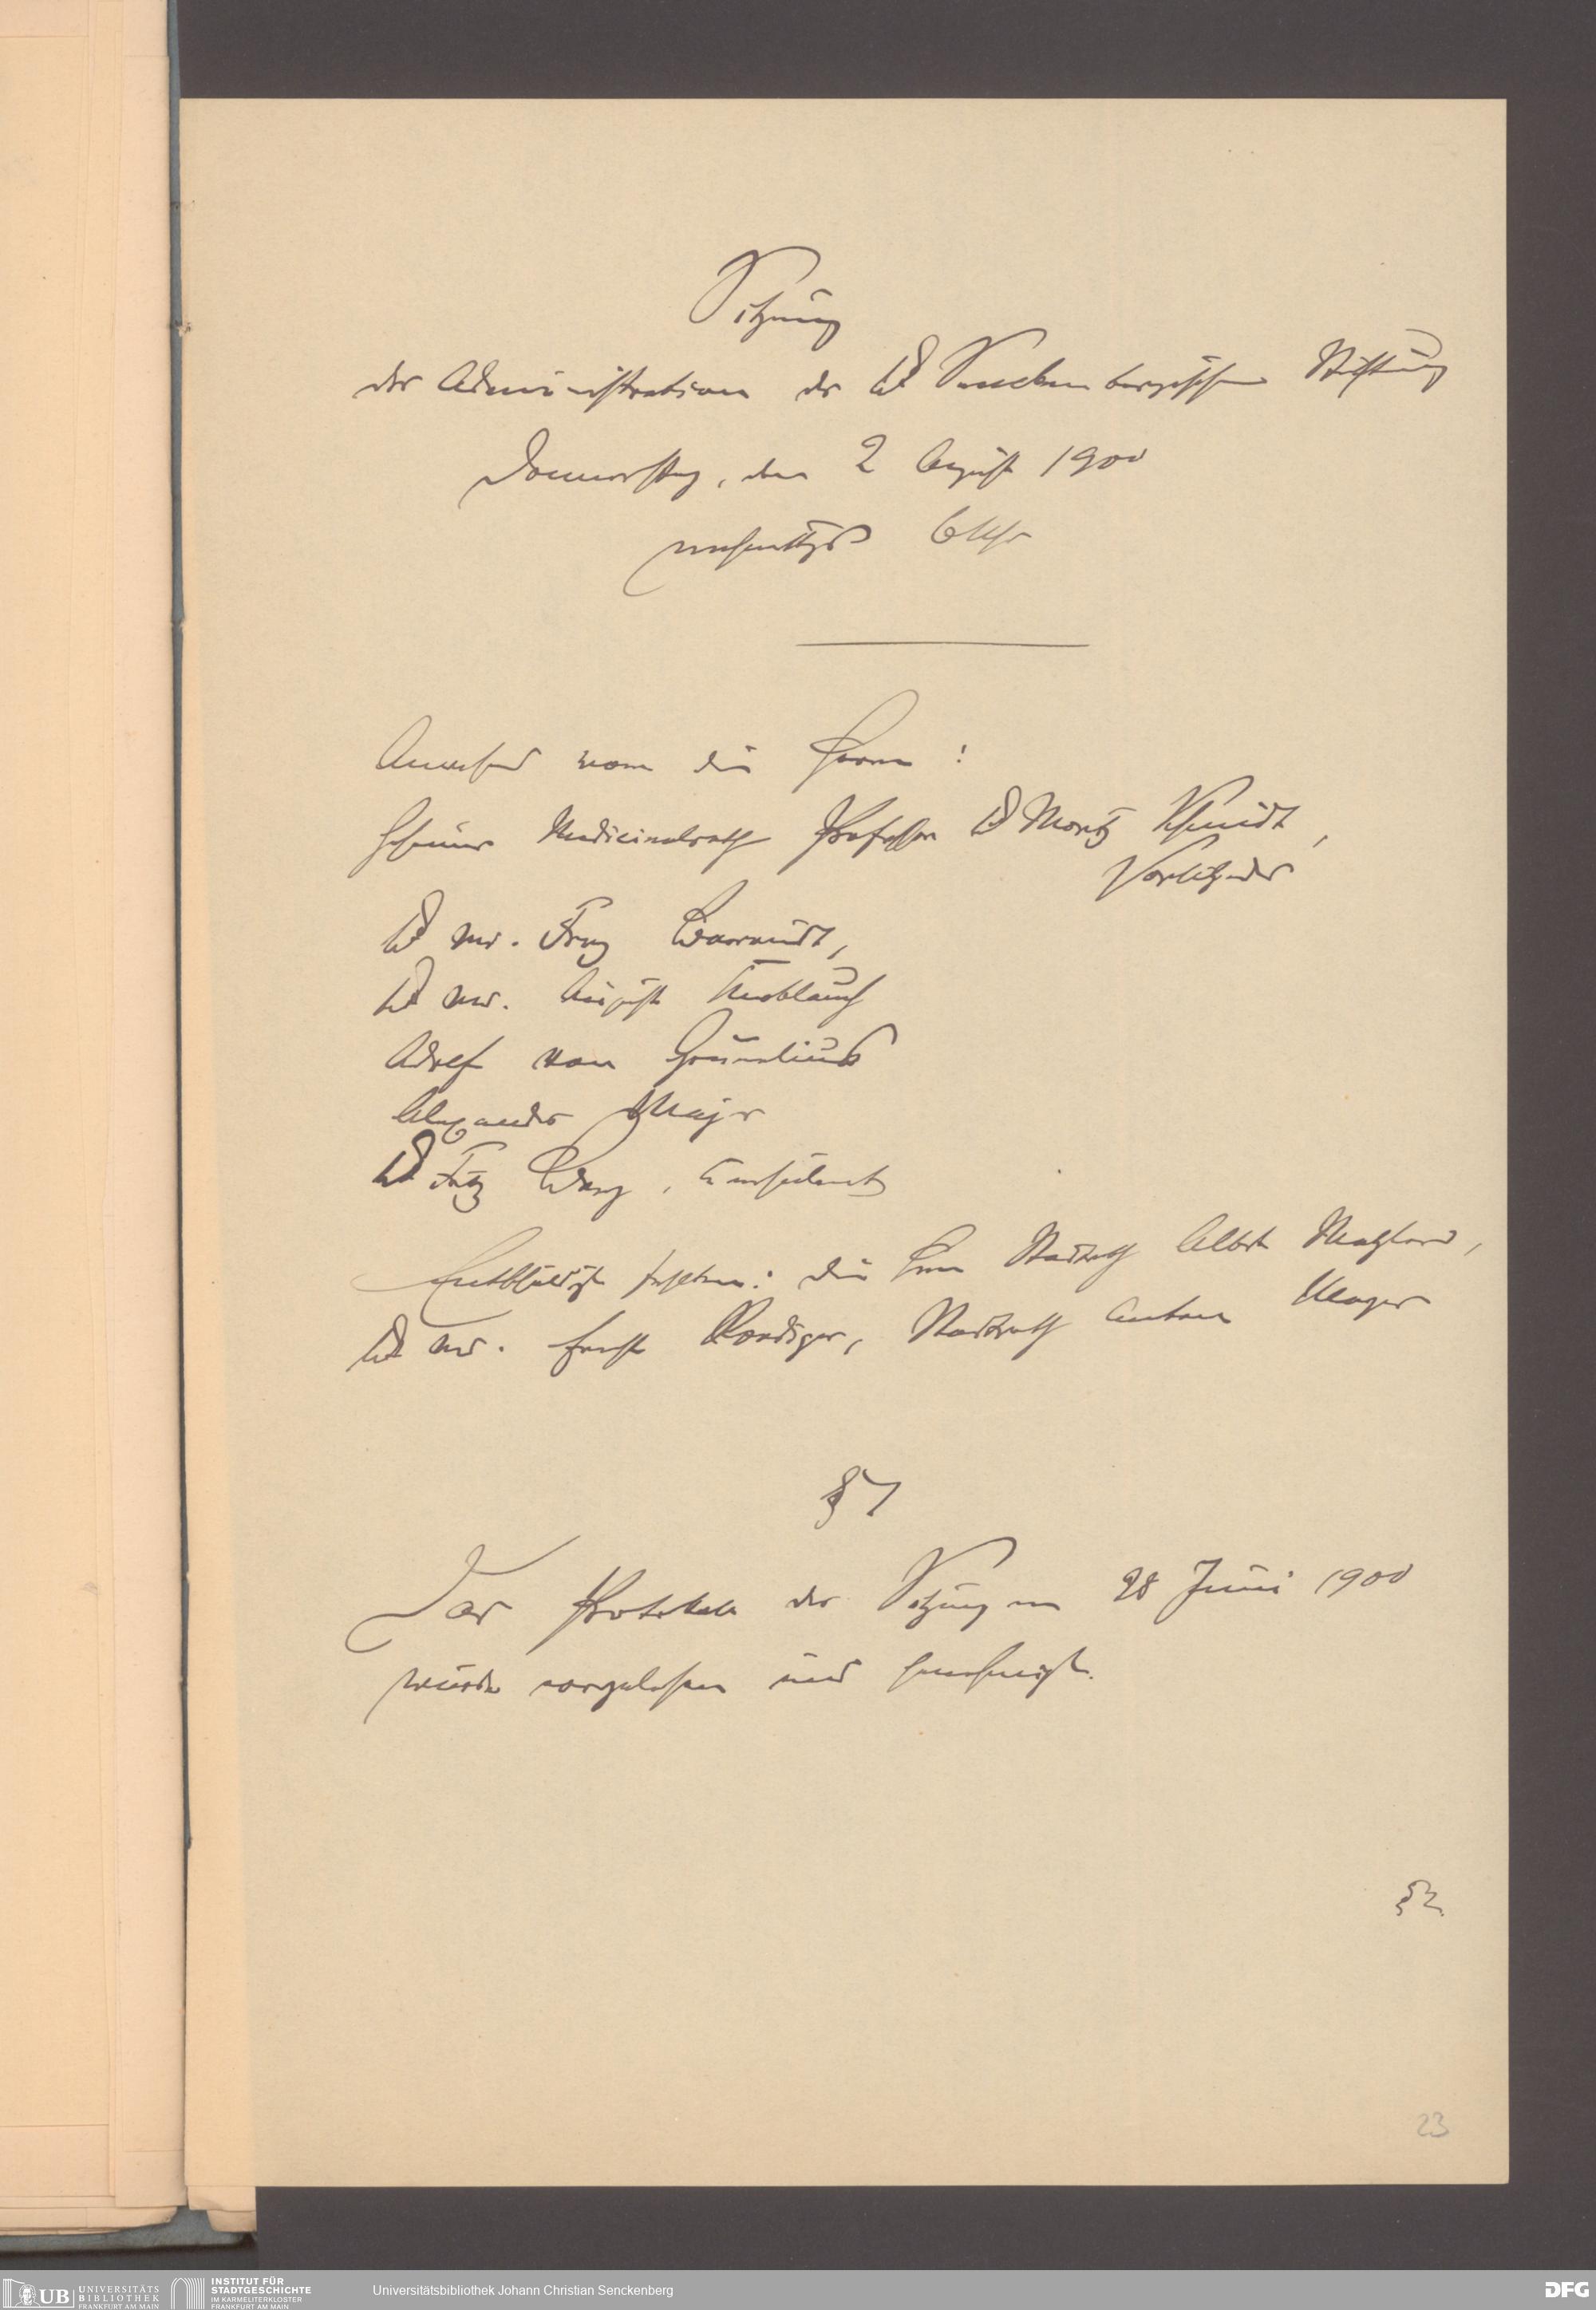 Sitzung
der Administration der Dr Senckenbergischen Stiftung
Donnerstag, den 2 August 1900
nachmittags 6 Uhr
Anwesend waren die Herren:
Geheimer Medicinalrath Professor Dr Moritz Schmidt,
Vorsitzender
Dr med. Franz
Dr med. August Knoblauch
Adolf von Grunelius
Alexander Majer
Dr Fritz Berg, Consulent
Entschuldigt fehlten: die Herren Stadtrath Albert Metzler,
Dr med. Ernst Roediger, Stadtrath Anton Meyer
§ 1
Das Protokoll der Sitzung vom 28 Juni 1900
wurde vorgelesen und genehmigt.
§ 2.
23
UB UNIVERSITÄTS
BIBLIOTHEK
FRANKFURT AM MAIN
INSTITUT FÜR
STADTGESCHICHTE
IM KARMELITERKLOSTER
FRANKFURT AM MAIN
Universitätsbibliothek Johann Christian Senckenberg
DFG